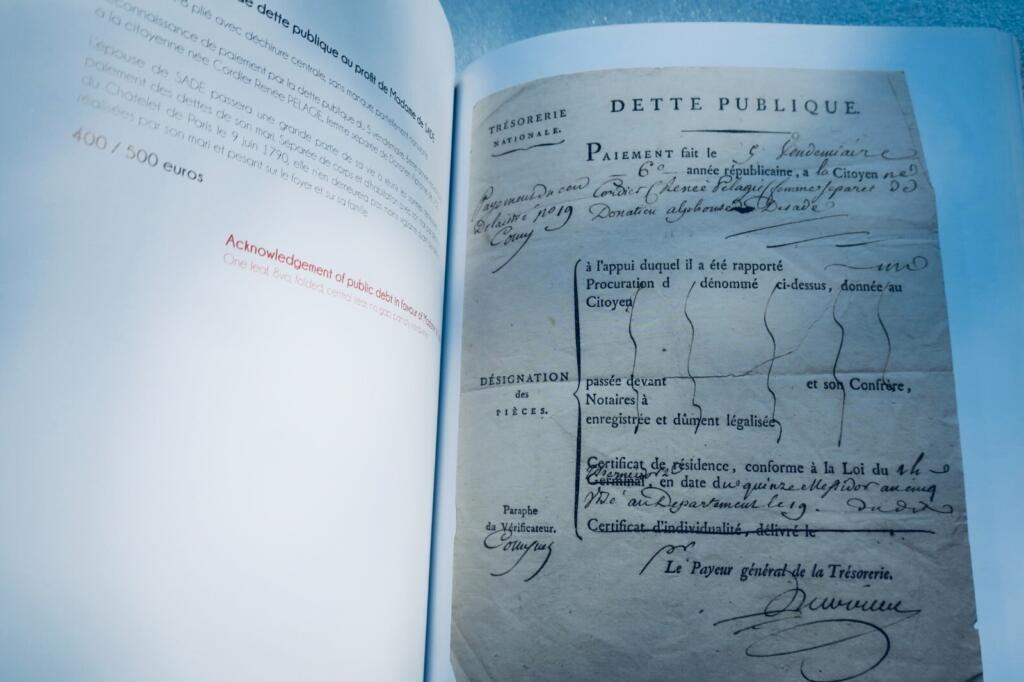 dette publique au profit de Madame de SADE
plié avec déchirure centrale, sans manque, partiellement manuscrit.
connaissance de paiement par la dette publique du 5 vendémiaire,
à la citoyenne née Cordier Renée PELAGIE, femme séparée de Donatien Alphonse de
L'épouse de SADE passera une grande partie de sa vie à
paiement des dettes de son mari. Séparée de corps et d'habitation
du Châtelet de Paris le 9 juin 1790, elle n'en demeurera pas moins
réalisées par son mari et pesant sur le foyer et sur sa famille.
400 / 500 euros
Acknowledgement of public debt in favour of Madame
One leaf, 8vo, folded, central tear no gap,
TRÉSORERIE
NATIONALE.
DETTE PUBLIQUE.
PAIEMENT fait le 5 Vendemiaire
6e année républicaine, a la Citoyen née
Cordier (Renée Pelagie) femme separeé de
Donatien alphonse Desade
Payement du
Delaissé no 19
à l'appui duquel il a été rapporté un
Procuration d dénommé ci-dessus, donnée au
Citoyen
DÉSIGNATION
des
PIÈCES.
passée devant et son Confrère,
Notaires à
enregistrée et dûment légalisée
Certificat de résidence, conforme à la Loi du
Germinal, en date du quinze Messidor an cinq
Visé au Departement le 19. dudit
Certificat d'individualité, délivré le
Paraphe
du Vérificateur.
pr
Le Payeur général de la Trésorerie.